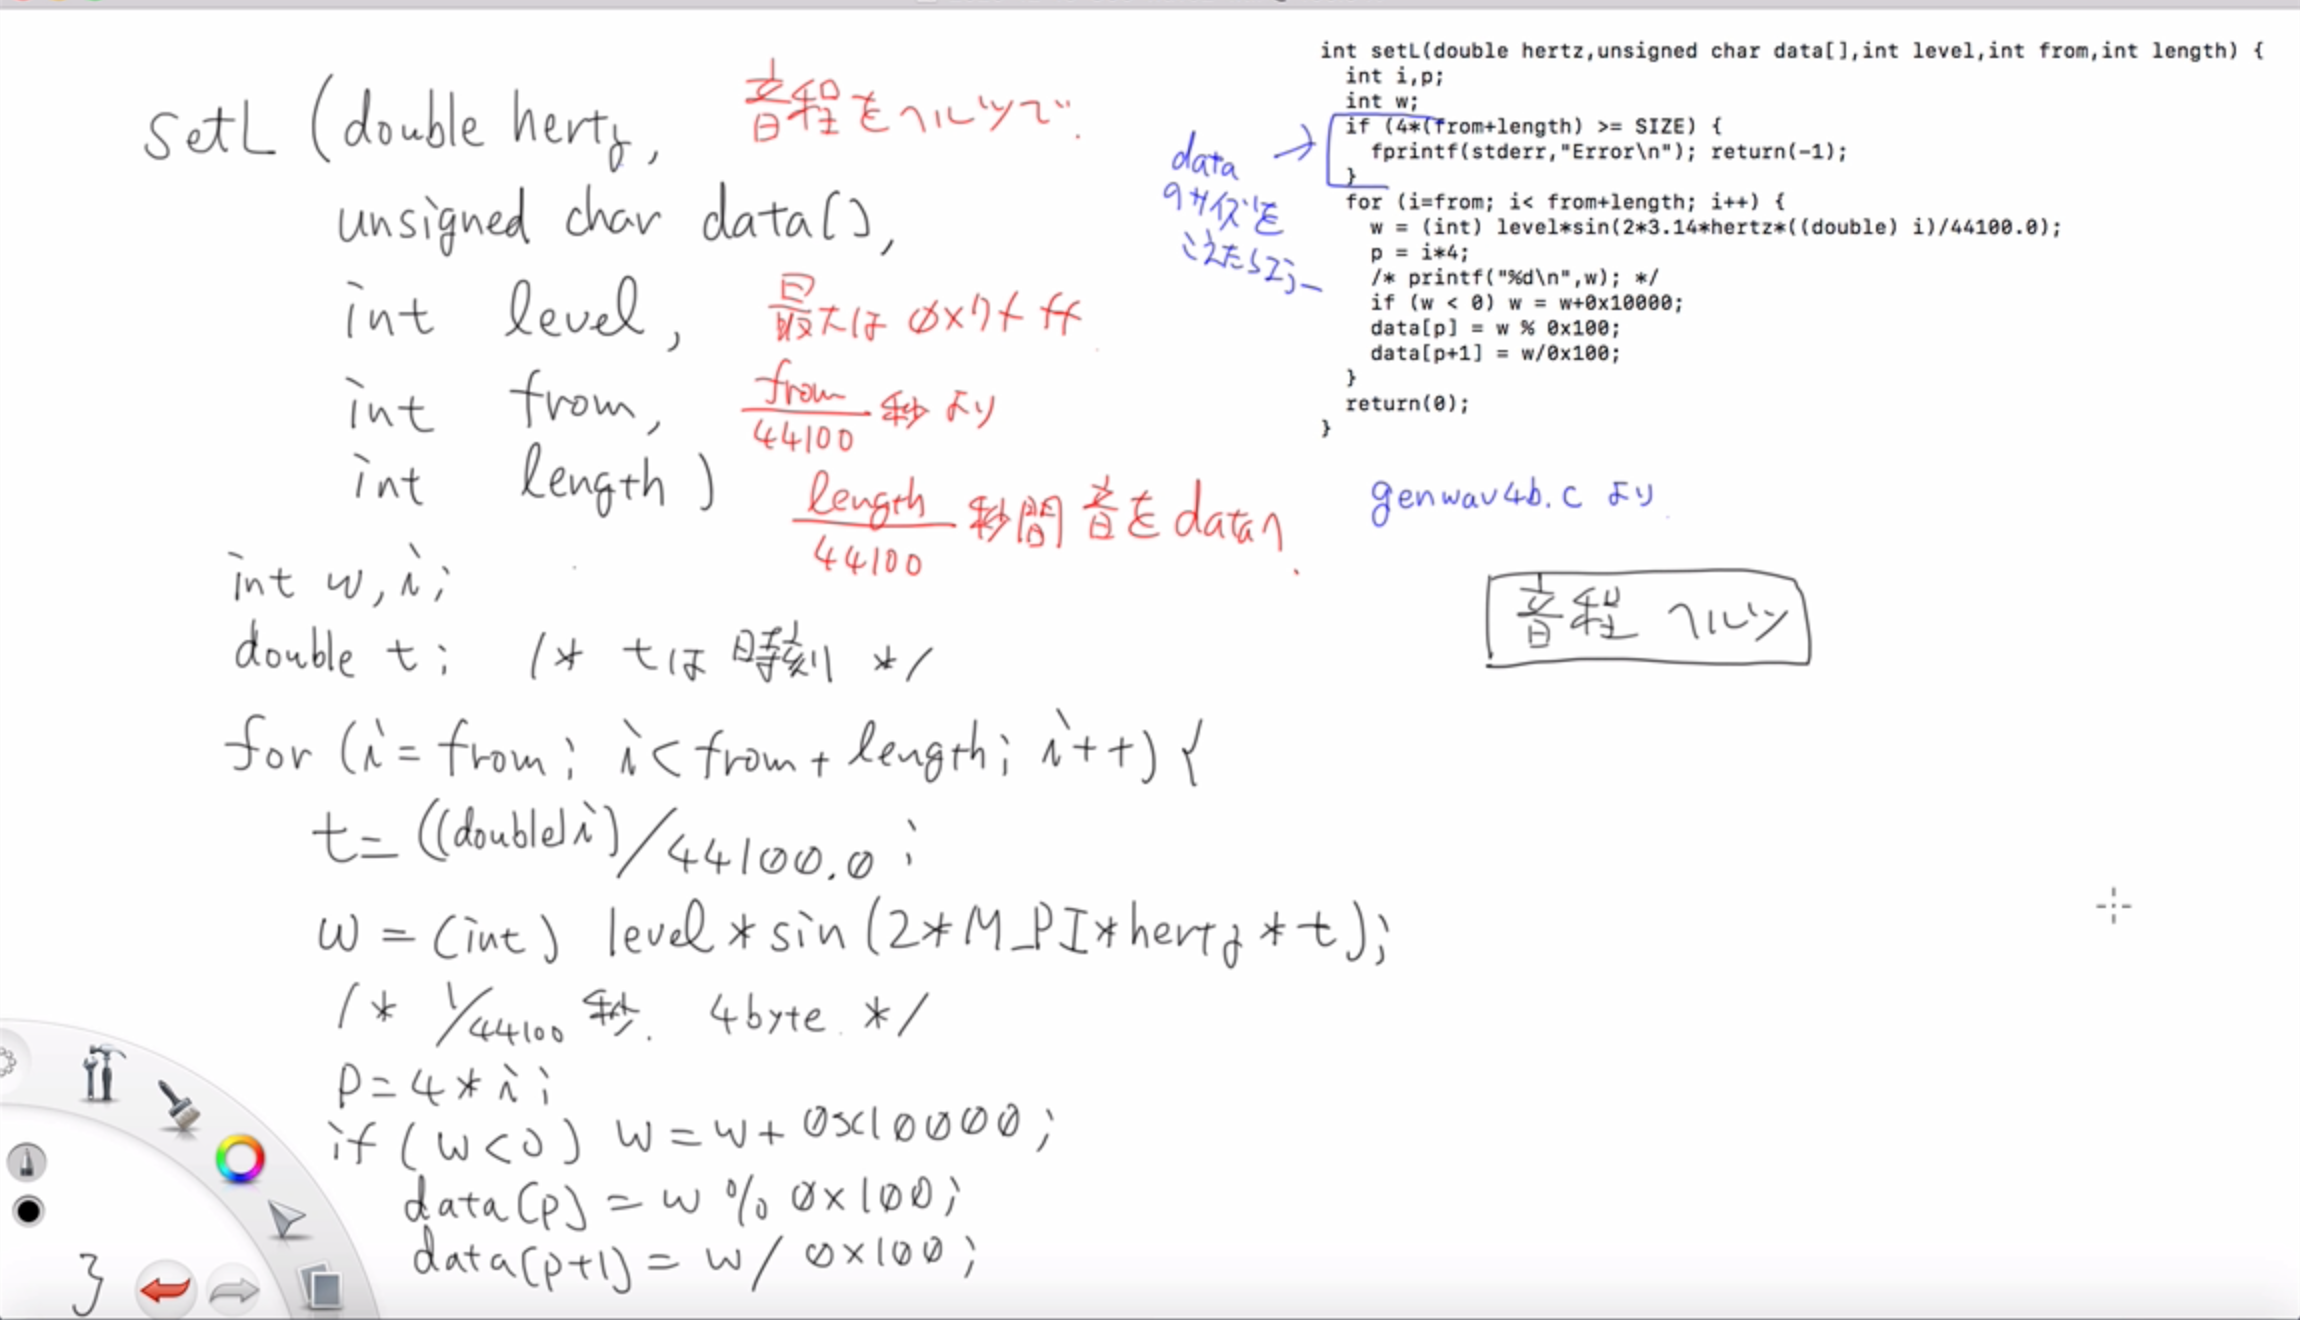 setL (double hertz, 音程をヘルツで.
unsigned char data[],
int level, 最大は 0x7fff
int from, from/44100 秒 より
int length) length/44100 秒間 音を dataへ.
int w, i;
double t; /* tは 時刻 */
for (i = from; i < from + length; i++) {
t = ((double)i)/44100.0;
w = (int) level * sin(2*M_PI*hertz*t);
/* 1/44100 秒. 4byte. */
p = 4 * i;
if (w<0) w = w + 0x10000;
data[p] = w % 0x100;
data[p+1] = w / 0x100;
}
int setL(double hertz,unsigned char data[],int level,int from,int length) {
int i,p;
int w;
if (4*(from+length) >= SIZE) {
fprintf(stderr,"Error\n"); return(-1);
}
for (i=from; i< from+length; i++) {
w = (int) level*sin(2*3.14*hertz*((double) i)/44100.0);
p = i*4;
/* printf("%d\n",w); */
if (w < 0) w = w+0x10000;
data[p] = w % 0x100;
data[p+1] = w/0x100;
}
return(0);
}
data
のサイズを
こえたらエラー
genwav4b.c より
音程 ヘルツ